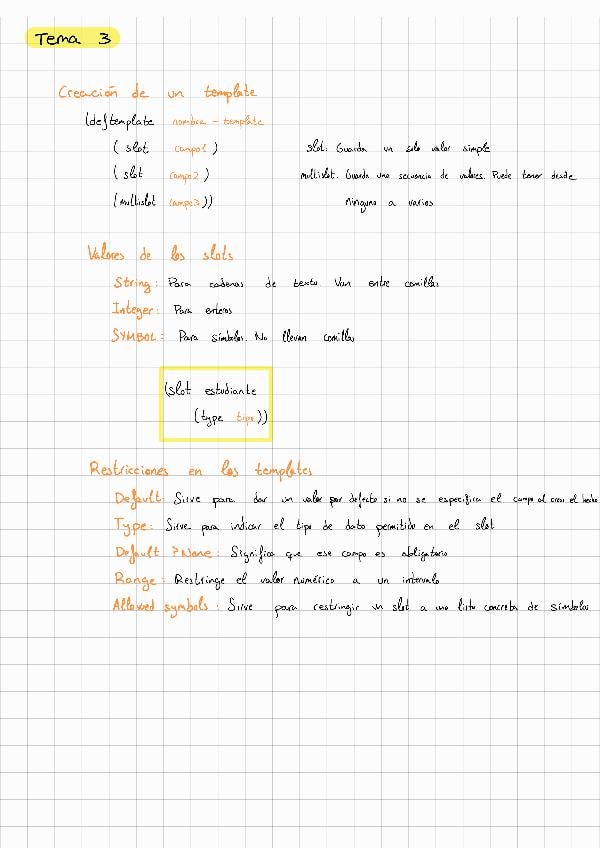 Tema 3
Creación de un template
(deftemplate nombre - template
( slot campo1 ) slot: Guarda un solo valor simple
( slot campo2 ) multislot. Guarda una secuencia de valores. Puede tener desde
(multislot campo3)) ninguno a varios
Valores de los slots
String: Para cadenas de texto. Van entre comillas
Integer: Para enteros
SYMBOL: Para símbolos. No llevan comillas
(slot estudiante
(type tipo))
Restricciones en los templates
Default: Sirve para dar un valor por defecto si no se especifica el campo al crear el hecho
Type: Sirve para indicar el tipo de dato permitido en el slot
Default ?None: Significa que ese campo es obligatorio
Range: Restringe el valor numérico a un intervalo
Allowed symbols: Sirve para restringir un slot a una lista concreta de símbolos